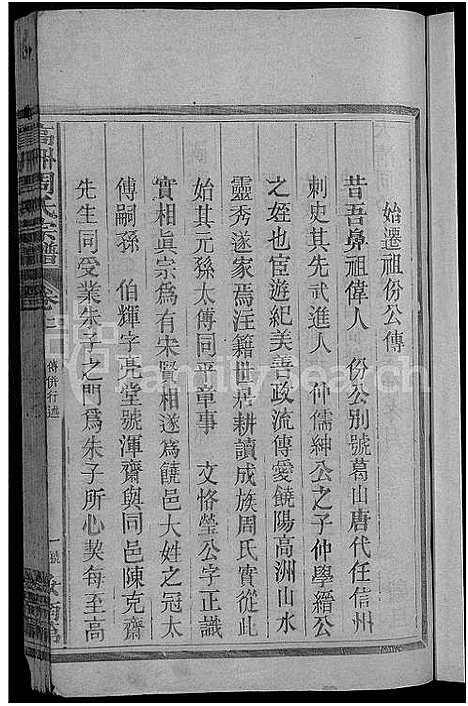 始遷祖份公傳
昔吾鼻祖偉人 份公別號葛山唐代任信州
刺史其先武進人 仲儒紳公之子仲學縉公
之姪也宦遊紀美善政流傳愛饒陽高洲山水
靈秀遂家焉注籍世居耕讀成族周氏實從此
始其元孫太傅同平章事 文恪瑩公字正識
實相眞宗爲有宋賢相遂爲饒邑大姓之冠太
傅嗣孫 伯輝字亮堂號渾齋與同邑陳克齋
先生同受業朱子之門爲朱子所心契每至高
高洲周氏宗譜
卷
傳併行述
一號
familysearch